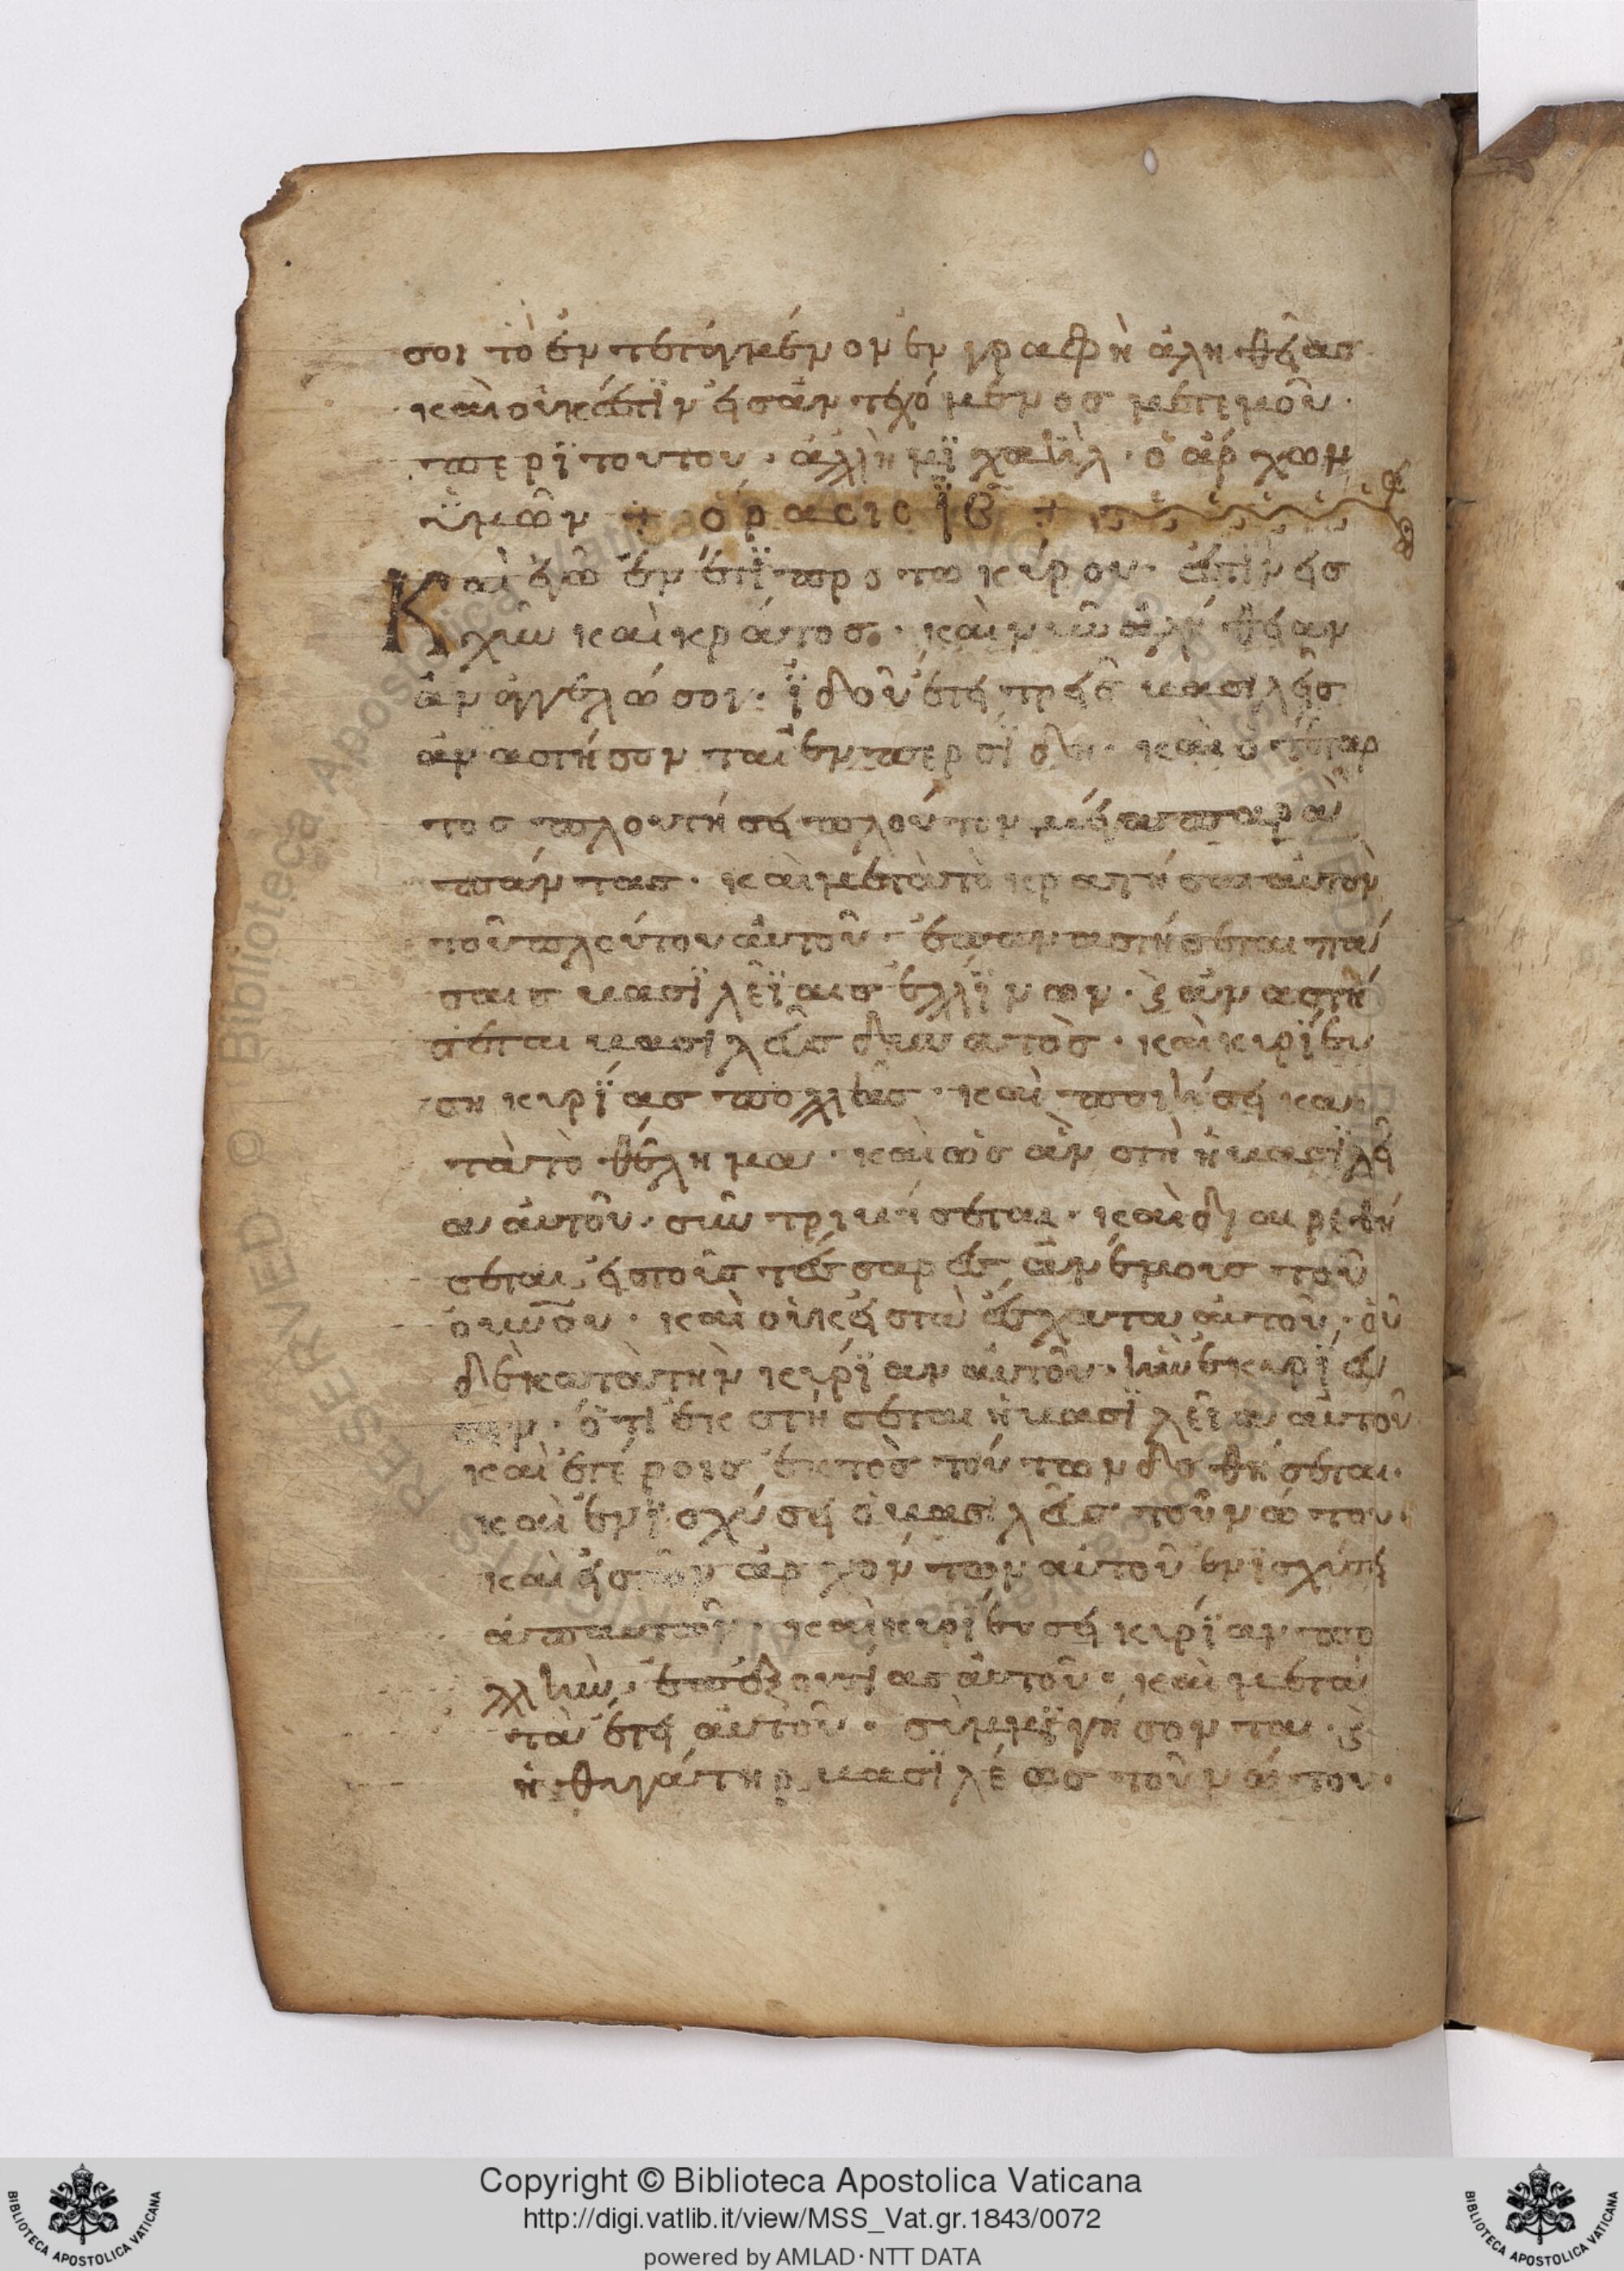 σοι τὸ ἐντεταγμένον ἐν γραφῆ ἀληθείασ·
καὶ οὐκ ἔστϊν εἷσ ἀντεχόμενοσ μετ' ἐμοῦ·
περϊ τουτου· ἀλλ' ἢ μϊχαὴλ· ὁ ἄρχων
ὑμῶν + ὁρασις ϊβ +
Καὶ ἐγὼ ἐν ἔτϊ πρώτω κύρου· ἔστϊν εἰσ
χῢν καὶ κράτοσ· καὶ νῦν ἀλήθειαν
ἀναγγελῶ σοι· ϊδοὺ ἔτι τρεῖσ βασιλεῖσ
ἀναστήσονται ἐν περσίδι· καὶ ὁ τέταρ
τοσ πλουτήσει πλοῦτον μέγα παρὰ
πάντασ· καὶ μετὰ τὸ κρατῆσαι αὐτὸν
τοῦ πλούτου αὐτοῦ· ἐπαναστήσεται πά
σαισ βασϊλεῖαισ ἑλλήνων· καὶ ἀναστή
σεται βασιλεὺσ δυνατὸσ· καὶ κυριεύ
ση κυρϊασ πολλῆσ· καὶ ποιήσει κα
τὰ τὸ θέλημα· καὶ ὡσ ἂν στῆ ἡ βασϊλεί
α αὐτοῦ· συντριβήσεται· καὶ διαιρεθή
σεται εἰσ τοὺσ τέσσαρεσ ἀνέμουσ τοῦ
οὐνοῦ· καὶ οὐκ εἰσ τὰ ἔσχατα αὐτοῦ· οὐ
δὲ κατὰ τὴν κυρϊαν αὐτοῦ· ἣν ἐκυρϊευ
σεν· ὅτι ἐκστήσεται ἡ βασϊλεῖα αὐτοῦ
καὶ ἑτέροισ ἐκτὸσ τούτων δοθήσεται·
καὶ ἐνϊσχύσει ὁ βασιλεὺσ τοῦ νώτου·
καὶ εἷσ τῶν ἀρχόντων αὐτοῦ ἐνϊσχύσει
ἀπαυτοῦ· καὶ κυριεύσει κυρϊαν πο
λλὴν ἐπ' ἐξουσίασ αὐτοῦ· καὶ μετὰ
τὰ ἔτη αὐτοῦ· συμμϊγήσονται· καὶ
ἡ θυγάτηρ βασϊλέωσ τοῦ νώτου·
Copyright © Biblioteca Apostolica Vaticana
http://digi.vatlib.it/view/MSS_Vat.gr.1843/0072
powered by AMLAD·NTT DATA